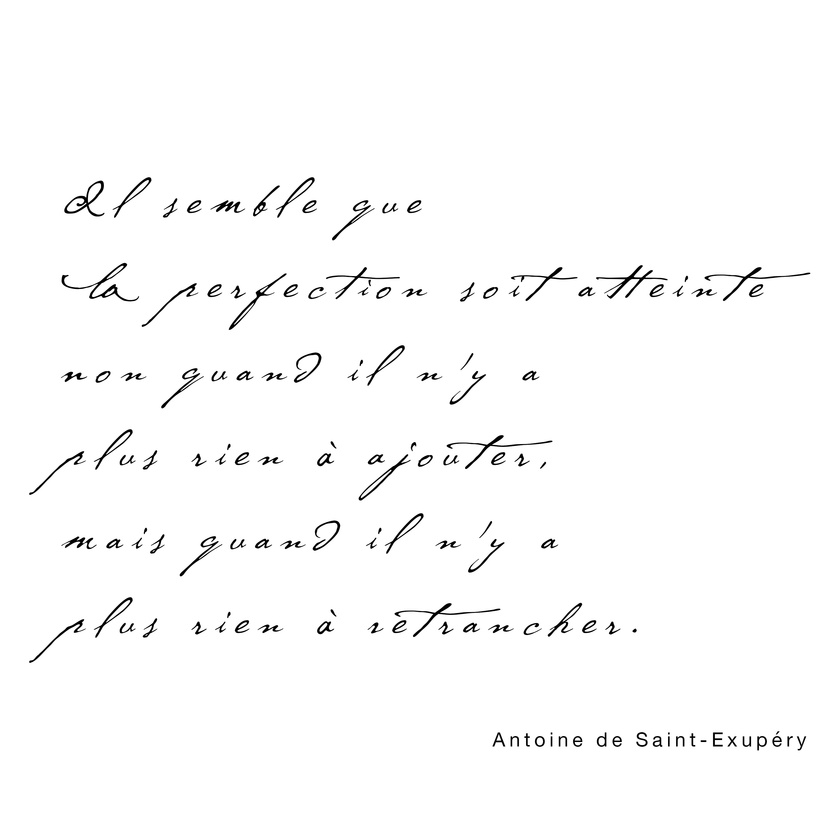 Il semble que
la perfection soit atteinte
non quand il n'y a
plus rien à ajouter,
mais quand il n'y a
plus rien à retrancher.
Antoine de Saint-Exupéry